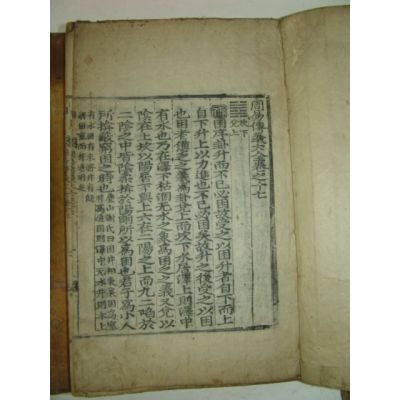 周易傳義大全卷之十七
坎下
兌上
困序卦升而不已必困故受之以困升者自下而上
自下升上以力進也不已必困矣故升之後受之以困
也困者憊乏之義爲卦兌上而坎下水居澤上則澤中
有水也乃在澤下枯涸无水之象爲困乏之義又兌以
陰在上坎以陽居下與上六在二陽之上而九二陷於
二陰之中皆陰柔揜於陽剛所以爲困也君子爲小人
所揜蔽窮困之時也